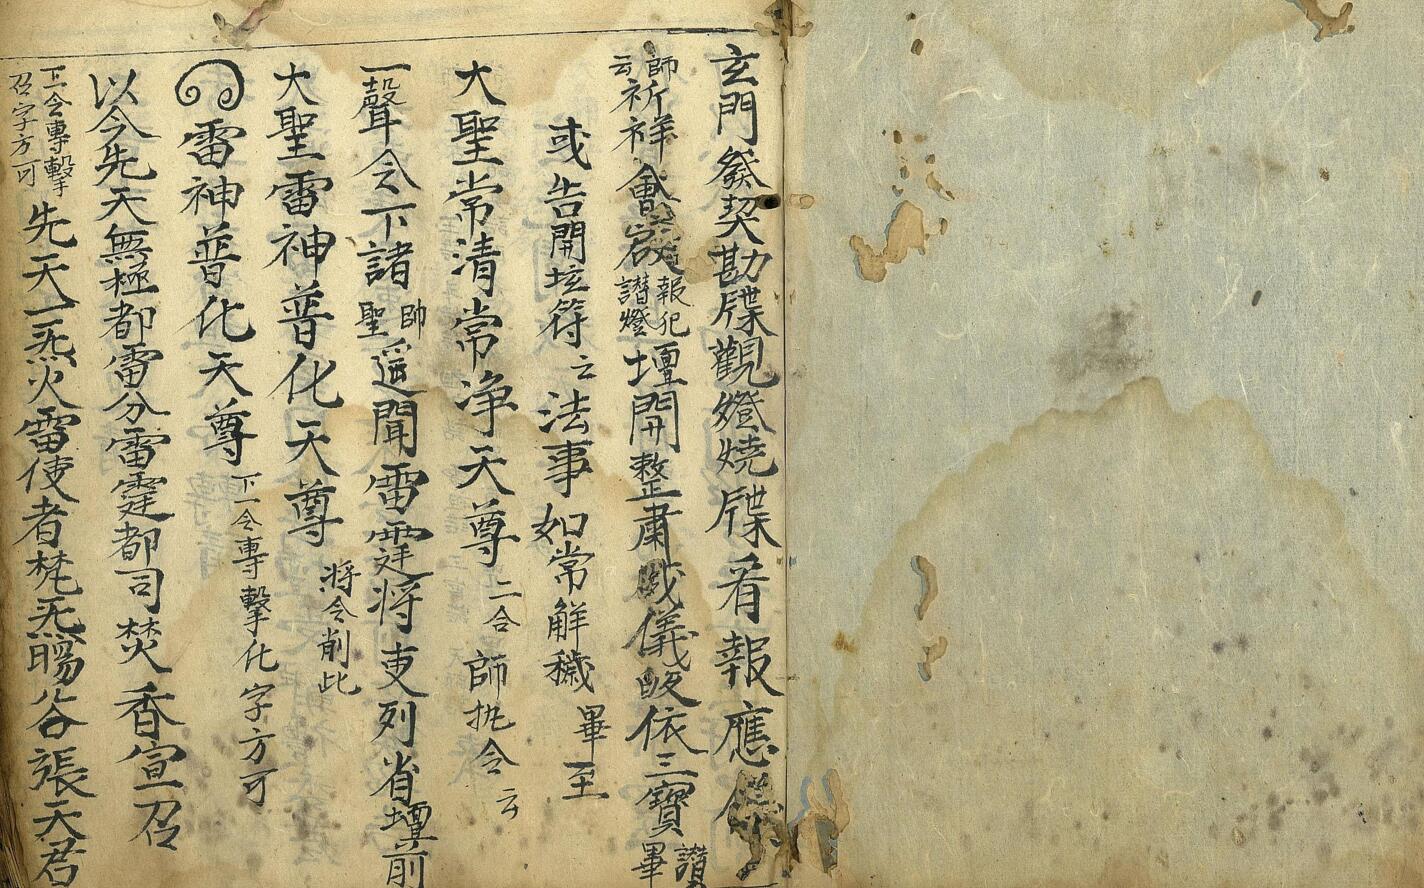 玄門發契勘牒觀燈燒牒看報應
師云祈祥會啟報犯讃燈壇開整肅威儀皈依三寶讃畢
或告開玄符云法事如常觧穢畢至
大聖常清常净天尊二合師执令云
一聲令下諸帥聖遥聞雷霆將吏列省壇前
大聖雷神普化天尊將令削此
雷神普化天尊下一令專擊化字方可
以今先天無極都雷分雷霆都司焚香宣召
三令專擊召字方可先天一炁火雷使者梵炁賜谷張天君